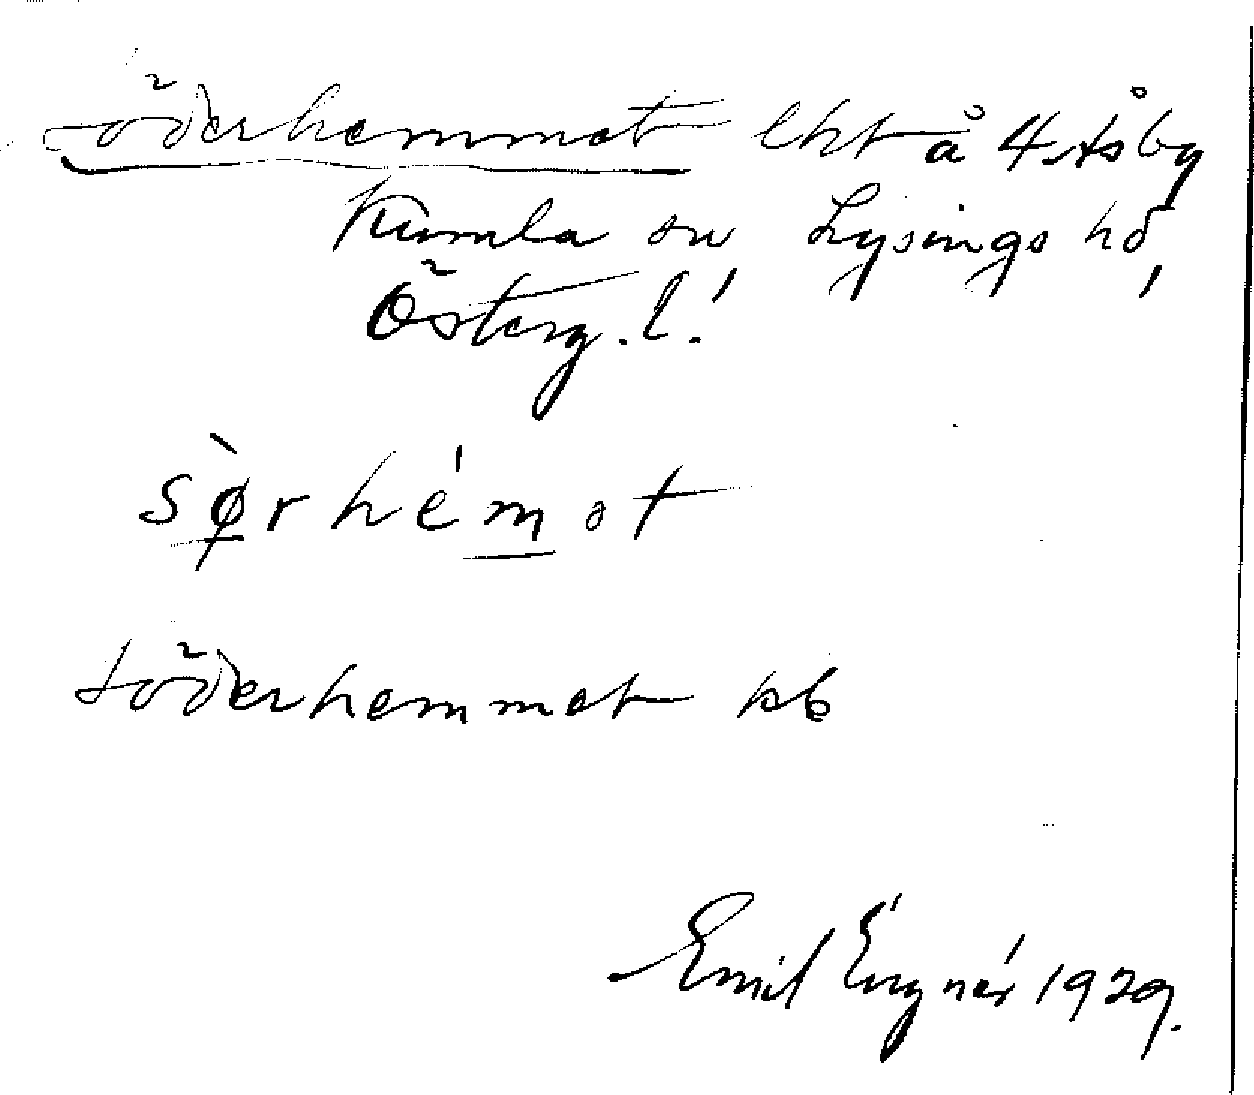 Söderhemmet lht å 4 Åsby
Kumla sn Lysings hd,
Österg. l.
sørhémot
Söderhemmet kb
Emil Engnér 1929.